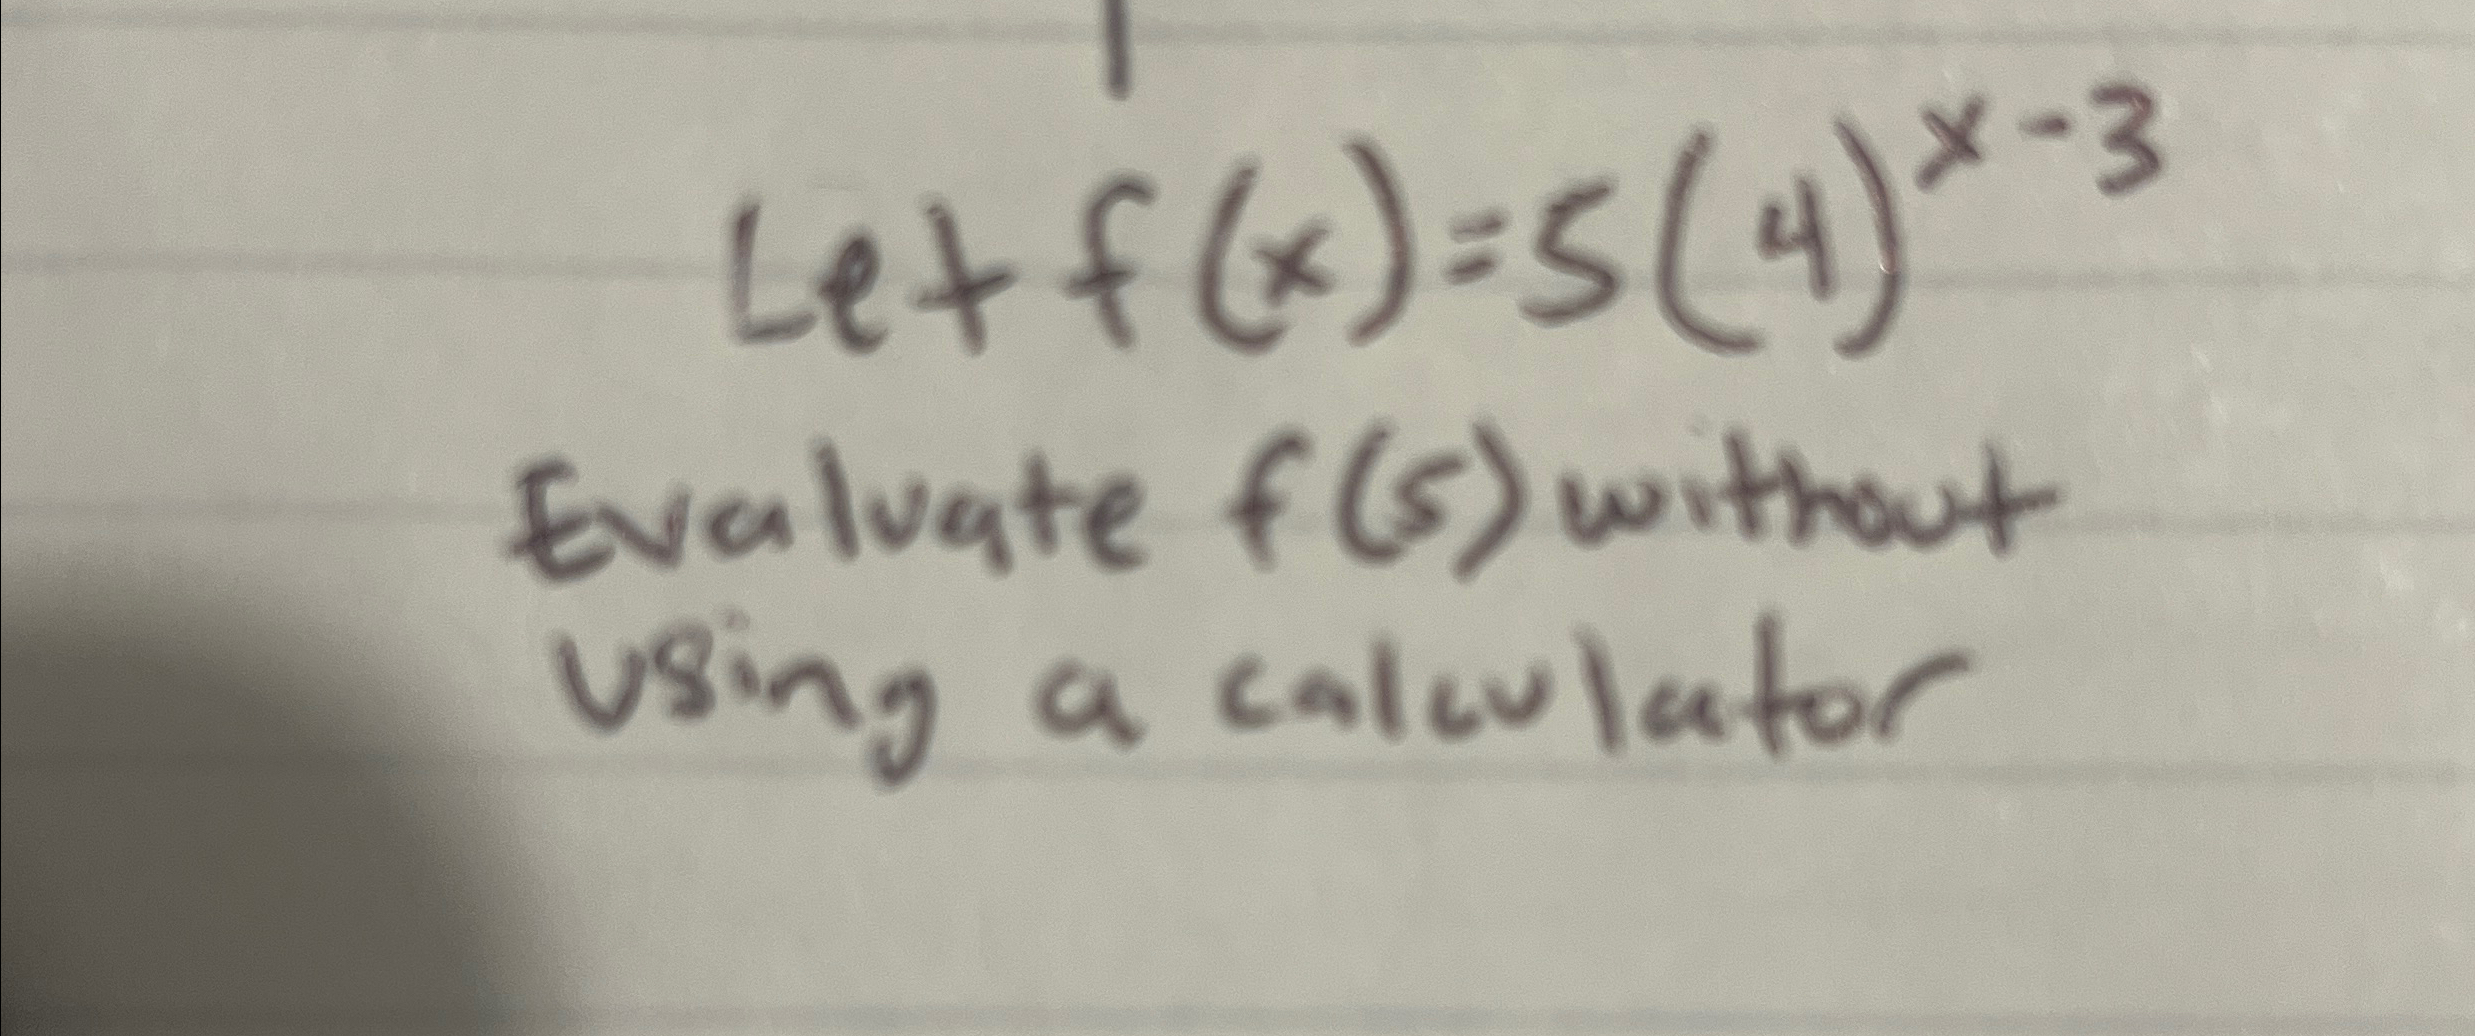 Let f(x)=5(4)^x-3
Evaluate f(5) without
using a calculator